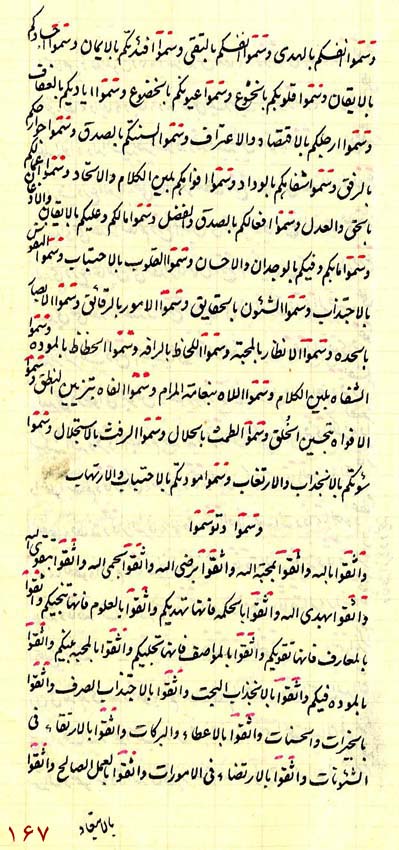 وسَتِّموا انفسكم بالهدى وسَتِّموا انفسكم بالتقى وسَتِّموا افئدتكم بالايمان وسَتِّموا
بالايقان وسَتِّموا قلوبكم بالخشوع وسَتِّموا عيونكم بالخضوع وسَتِّموا اياديكم بالعفاف
وسَتِّموا ارجلكم بالاقتصاد والاعتراف وسَتِّموا السنتكم بالصدق وسَتِّموا
بالرفق وسَتِّموا شفاهكم بالوداد وسَتِّموا افواهكم بلين الكلام والاتحاد وسَتِّموا
بالحق والعدل وسَتِّموا افعالكم بالصدق والفضل وسَتِّموا مالكم وعليكم بالايقان والاذعان
وسَتِّموا مابكم وفيكم بالوجدان والاحسان وسَتِّموا القلوب بالاجتباب وسَتِّموا النفوس
بالاجتذاب وسَتِّموا الشئون بالحقايق وسَتِّموا الامور بالرقائق وسَتِّموا الابصار
بالسجده وسَتِّموا الانظار بالمحبة وسَتِّموا اللحاظ بالرافه وسَتِّموا الحظاظ بالموده وسَتِّموا
الشفاه بلين الكلام وسَتِّموا اللاه بنعامة المرام وسَتِّموا الفاه بتزيين النطق وسَتِّموا
الافواه بتحسين الخُلق وسَتِّموا الطمث بالحلال وسَتِّموا الرفث بالاستجلال وسَتِّموا
شونكم بالانجذاب والارتغاب وسَتِّموا اموركم بالاجتباب والارتهاب
وسَتِّموا وتوسَتِّموا
واثِقوا بالله واثِقوا لمحبة الله واثِقوا برضى الله واثِقوا بحمى الله واثِقوا بتقوى الله
واثِقوا بهدى الله واثِقوا بالحكمه فانها تهديكم واثِقوا بالعلوم فانها تنجيكم واثِقوا
بالمعارف فانها تقويكم واثِقوا بالمواصف فانها تجليكم واثِقوا بالمحبة ليكم واثِقوا
بالموده فيكم واثِقوا بالانجذاب البحت واثِقوا بالاجتذاب الصرف واثِقوا
بالخيرات والحسنات واثِقوا بالاعطاء والبركات واثِقوا بالارتقاء فى
الشئونات واثِقوا بالارتضاء فى الامورات واثِقوا بالعمل الصالح واثِقوا
بالاميعاد
١٦٧